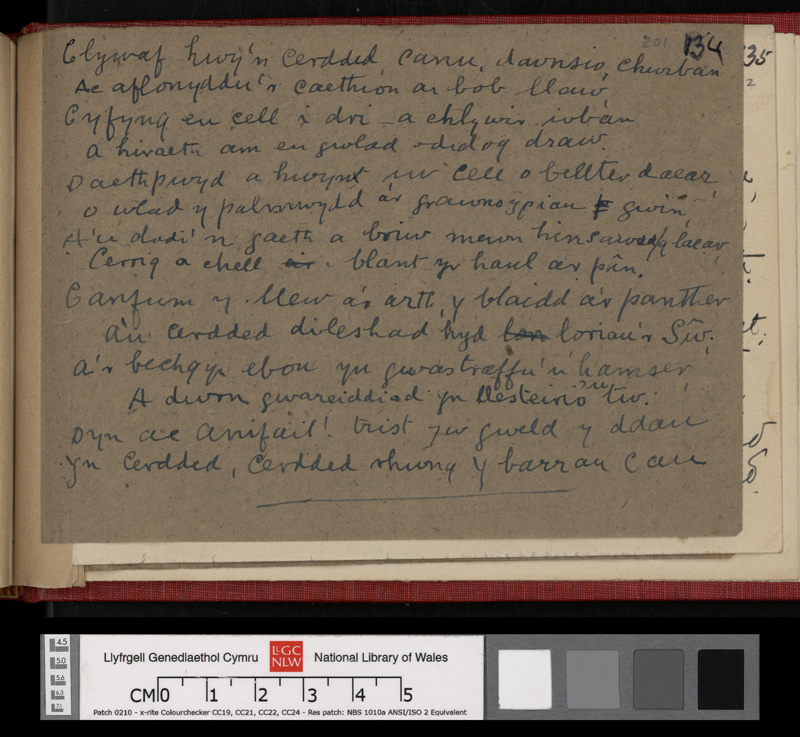 201 134
Clywaf hwy'n cerdded canu, dawnsio, chwiban
Ac aflonyddu'r caethion ar bob llaw
Cyfyng eu cell i dri - a chlywir
a hiraeth am eu gwlad odidog draw.
Daethpwyd a hwynt i'w cell o bellter daear,
o wlad y palmwydd a'r grawnsypian gwin,
A'u dodi'n gaeth a briw mewn hinsawdd glaear,
Cerrig a chell i blant yr haul a'r pîn.
Canfum y llew a'r arth, y blaidd a'r panther
a'u cerdded dileshad hyd loriau'r Sŵ;
a'r bechgyn ebon yn gwastraffu'u hamser,
A dwrn gwareiddiad yn llesteirio'u tw.
Dyn ac Anifail! trist yw gweld y ddau
Yn cerdded, cerdded rhwng y barrau cau
35
2
Llyfrgell Genedlaethol Cymru
LlGC
NLW
National Library of Wales
4.5
5.0
5.6
6.3
7.1
CM 0 1 2 3 4 5
Patch 0210 - x-rite Colourchecker CC19, CC21, CC22, CC24 - Res patch: NBS 1010a ANSI/ISO 2 Equivalent